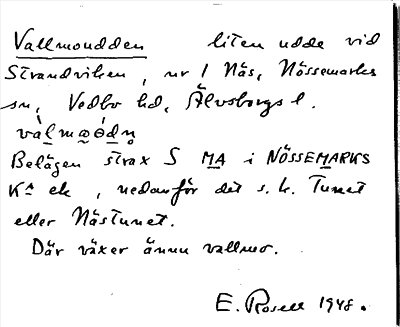 Vallmoudden liten udde vid
Strandviken, nr 1 Näs, Nössemarks
sn, Vedbo hd, Älvsborgs l.
Belägen strax S MA i NÖSSEMARKS
Ka ek, nedanför det s. k. Tunet
eller Nästunet.
Där växer ännu vallmo.
E. Rosell 1948.